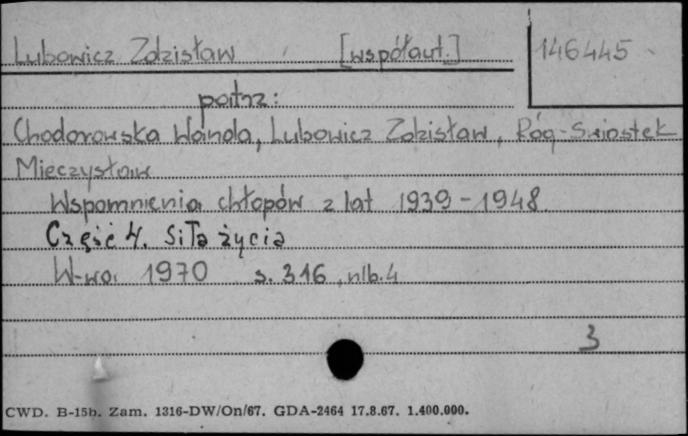 Lubowicz Zdzisław [współaut.] 146445
patrz:
Chodorowska Wanda, Lubowicz Zdzisław, Róg-Świostek
Mieczysław
Wspomnienia chłopów z lat 1939-1948
Część 4. Siła życia
W-wa 1970 s. 316, nlb. 4
3
CWD. B-15b. Zam. 1316-DW/On/67. GDA-2464 17.8.67. 1.400.000.